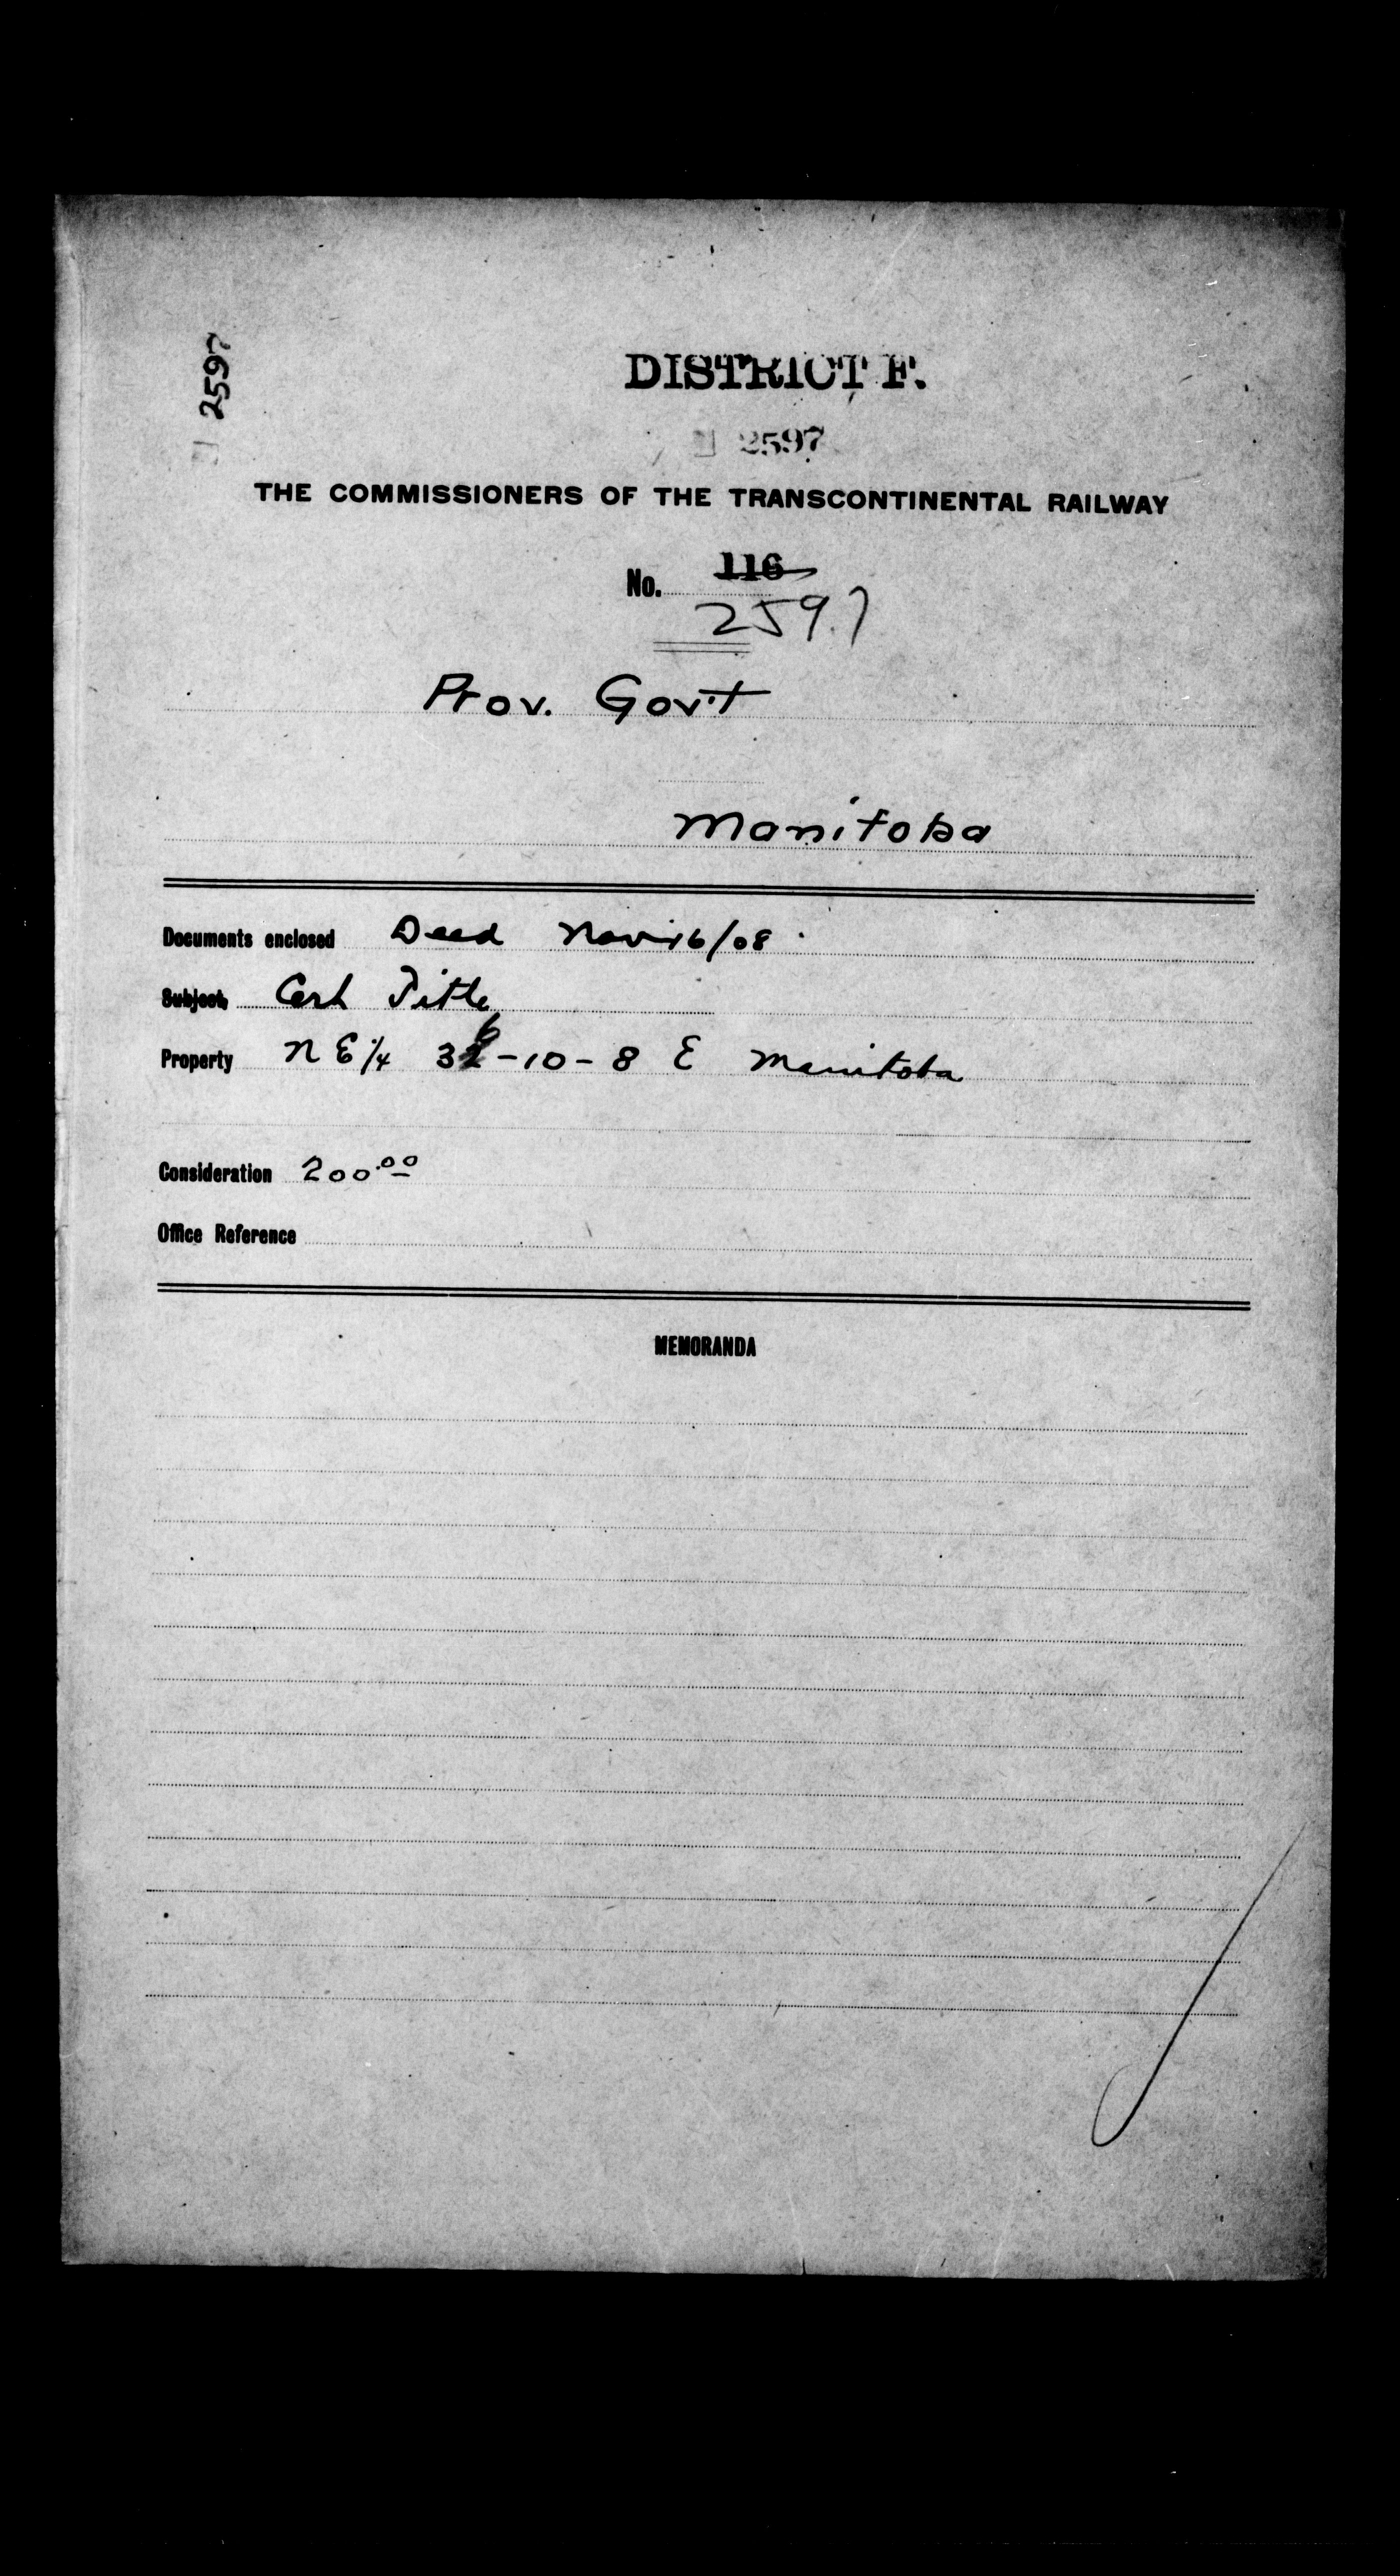 2597
DISTRICT F.
2597
THE COMMISSIONERS OF THE TRANSCONTINENTAL RAILWAY
No. 116
2597
Prov. Gov't
Manitoba
Documents enclosed Deed Nov 16/08
Subject Cert Title
Property N E 1/4 36-10-8 E Manitoba
Consideration 200.00
Office Reference
MEMORANDA